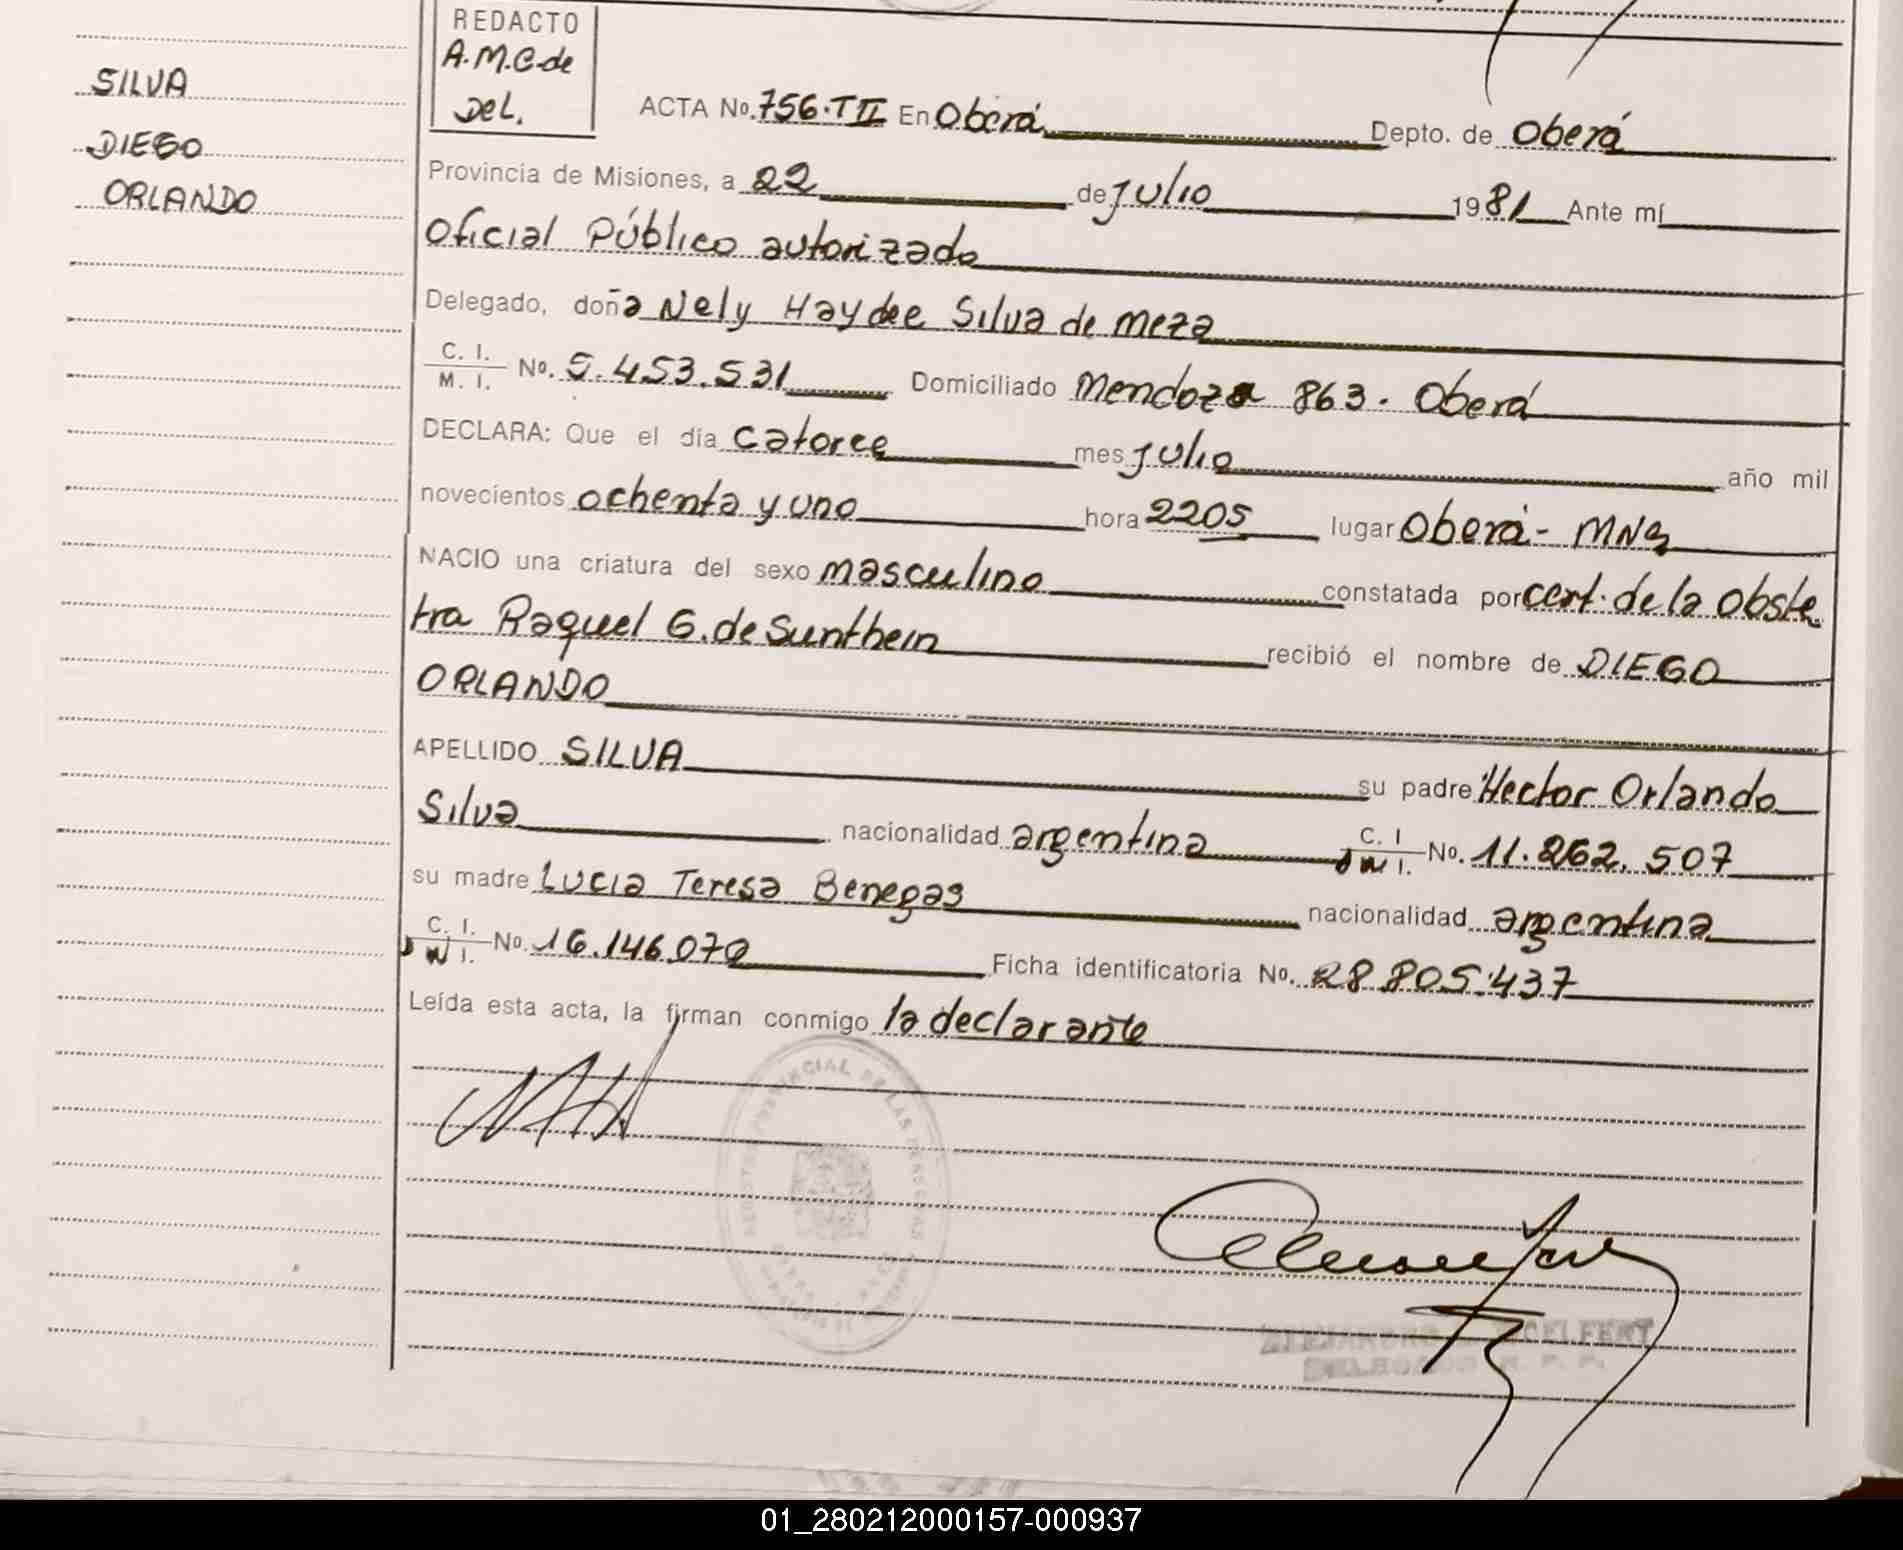 SILVA
DIEGO
ORLANDO
REDACTO
A.M.C. de
Del.
ACTA No. 756.TII En Oberá Depto. de Oberá
Provincia de Misiones, a 22 de julio 1981 Ante mí
Oficial Público autorizado
Delegado, doña Nely Haydee Silva de Meza
C. I.
M. I. No. 5.453.531 Domiciliado Mendoza 863. Oberá
DECLARA: Que el día catorce mes julio año mil
novecientos ochenta y uno hora 2205 lugar Oberá - MNs
NACIO una criatura del sexo masculino constatada por cert. de la obste
tra Raquel G. de Sunthein recibió el nombre de DIEGO
ORLANDO
APELLIDO SILVA su padre Hector Orlando
Silva nacionalidad argentina C. I No. 11.262.507
su madre Lucia Teresa Benegas nacionalidad argentina
C. I. No. 16.146.070 Ficha identificatoria No. 28 805.437
Leída esta acta, la firman conmigo la declarante
PROVINCIAL DE LAS PERSONAS
ALEJANDRO
DELEGADO R. P. P.
01_280212000157-000937